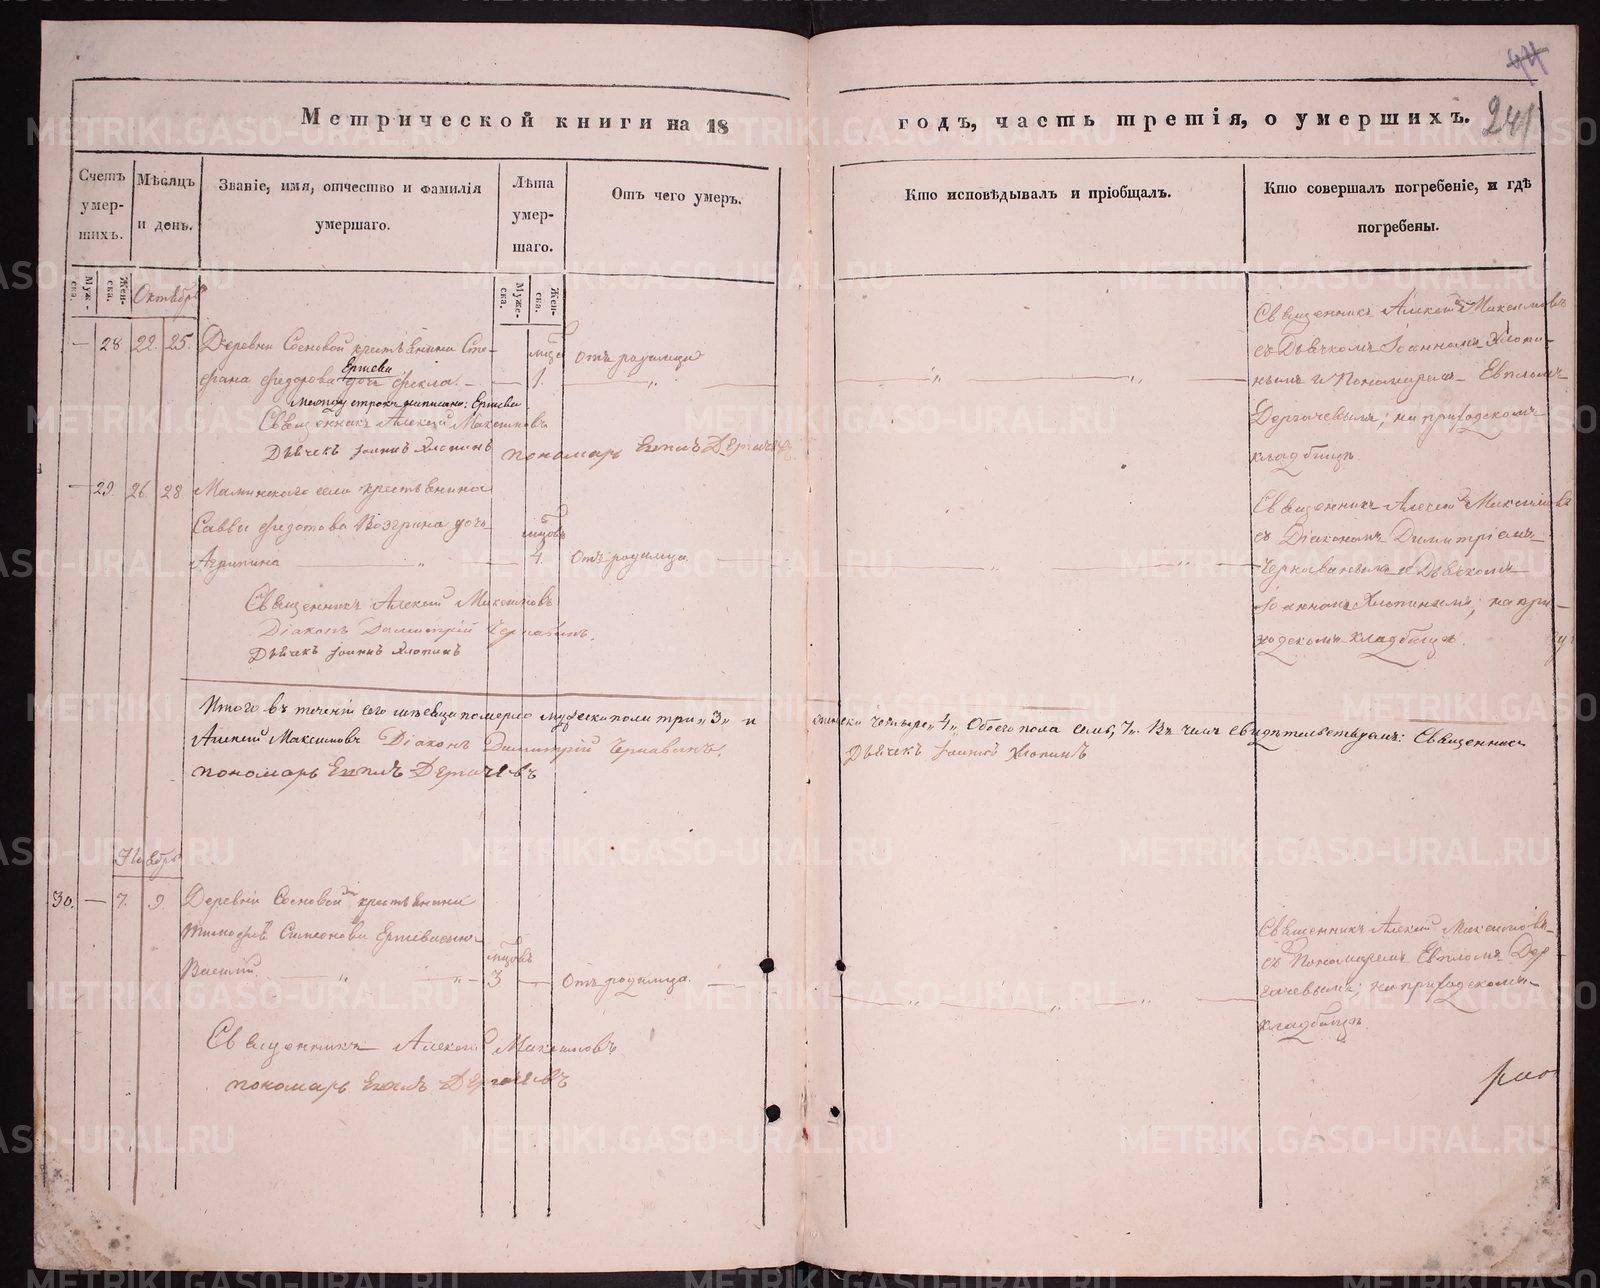 241
Метрической книги на 18
годъ, часть третія, о умершихъ.
Счетъ умер-шихъ.
Мѣсяцъ и день.
Званіе, имя, отчество и фамилія умершаго.
Лѣта умер-шаго.
Отъ чего умеръ.
Кто исповѣдывалъ и пріобщалъ.
Кто совершалъ погребеніе, и гдѣ погребены.
Муже-ска.
Жен-ска.
Муже-ска.
Жен-ска.
Октябрь
28 22. 25. Деревни Сосновой крестьянина Сте-
фана Федорова Ершева дочь Фекла.
1. Отъ родимца
Между строкъ написано: Ершева
Священникъ Алексій Максимовъ
Дьячекъ Іоаннъ Хлопинъ
пономарь Евплъ Дергачевъ
Священникъ Алексій Максимовъ
съ Дьячкомъ Іоанномъ Хлопи-
нымъ и Пономаремъ Евпломъ
Дергачевымъ; на приходскомъ
кладбищѣ.
29. 26. 28 Маминскаго села крестьянина
Саввы Федотова Возгрина дочь
Агрипина
мцовъ
4. Отъ родимца
Священникъ Алексій Максимовъ
Діаконъ Димитрій Чернавинъ.
Дьячекъ Іоаннъ Хлопинъ
Священникъ Алексій Максимовъ
съ Діакономъ Димитріемъ
Чернавинымъ и Дьячкомъ
Іоанномъ Хлопинымъ; на при-
ходскомъ кладбищѣ.
Итого въ теченіи сего мѣсяца померло мужеска пола три „3„ и
женска четыре „4„ Обоего пола семь „7„. Въ чемъ свидѣтельствуемъ: Священникъ
Алексій Максимовъ Діаконъ Димитрій Чернавинъ.
Дьячекъ Іоаннъ Хлопинъ
пономарь Евплъ Дергачевъ
Ноябрь
30. 7. 9. Деревни Сосновой крестьянина
Тимофея Симеонова Ершева сынъ
Василій.
мцовъ
3 Отъ родимца.
Священникъ Алексій Максимовъ
пономарь Евплъ Дергачевъ
Священникъ Алексій Максимовъ
съ Пономаремъ Евпломъ Дер-
гачевымъ; на приходскомъ
кладбищѣ.